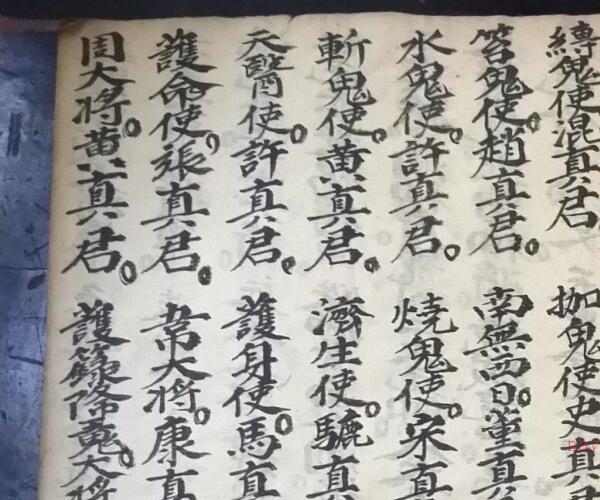 縛鬼使混真君
枷鬼使史真君
笞鬼使趙真君
南無而日董真
水鬼使許真君
燒鬼使宋真
斬鬼使黄真君
濟生使驢真
天醫使許真君
護身使馬真
護命使張真君
大將康真
周大将黄真君
護籙降鬼大將